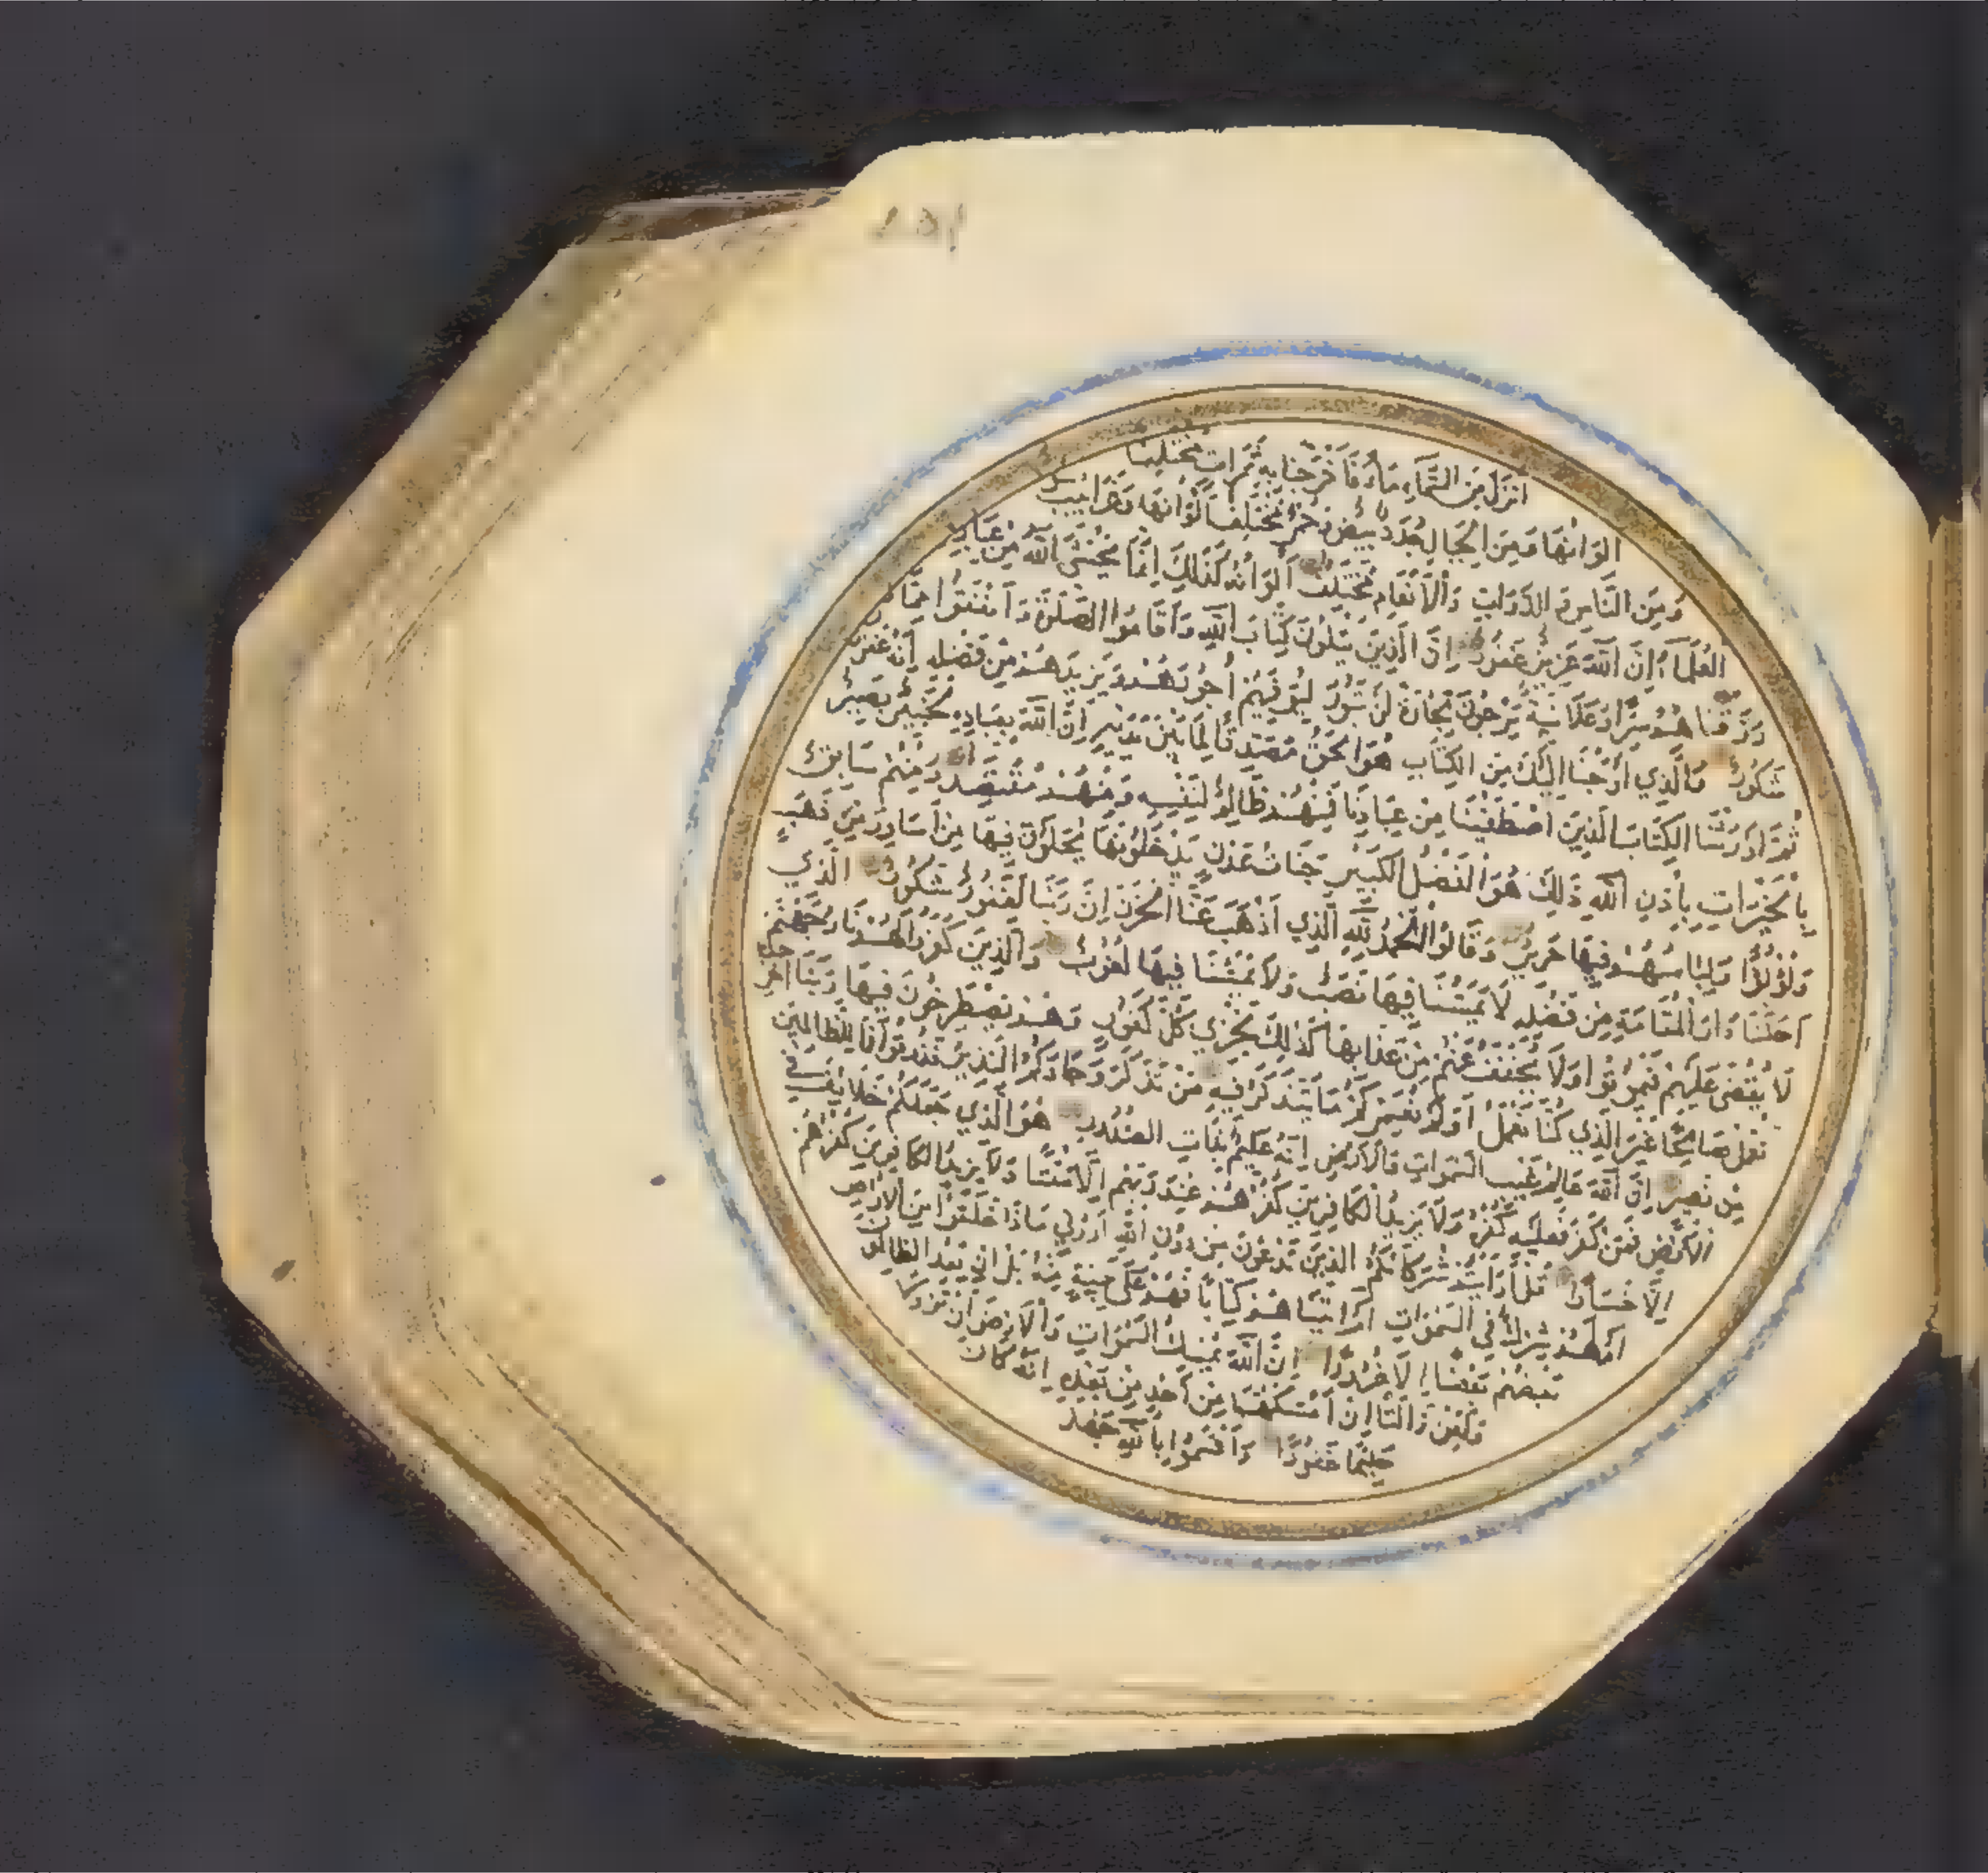 انزل من السماء ماء فاخرجنا به ثمرات مختلفا
الوانها ومن الجبال جدد بيض وحمر مختلف الوانها وغرابيب سود
ومن الناس والدواب والانعام مختلف الوانه كذلك انما يخشى الله من عباده
العلماء ان الله عزيز غفور ان الذين يتلون كتاب الله واقاموا الصلوة وانفقوا مما
رزقناهم سرا وعلانية يرجون تجارة لن تبور ليوفيهم اجورهم ويزيدهم من فضله انه غفور
شكور والذي اوحينا اليك من الكتاب هو الحق مصدقا لما بين يديه ان الله بعباده لخبير بصير
ثم اورثنا الكتاب الذين اصطفينا من عبادنا فمنهم ظالم لنفسه ومنهم مقتصد ومنهم سابق
بالخيرات باذن الله ذلك هو الفضل الكبير جنات عدن يدخلونها يحلون فيها من اساور من ذهب
ولؤلؤا ولباسهم فيها حرير وقالوا الحمد لله الذي اذهب عنا الحزن ان ربنا لغفور شكور الذي
احلنا دار المقامة من فضله لا يمسنا فيها نصب ولا يمسنا فيها لغوب والذين كفروا لهم نار جهنم
لا يقضى عليهم فيموتوا ولا يخفف عنهم من عذابها كذلك نجزي كل كفور وهم يصطرخون فيها ربنا اخرجنا
نعمل صالحا غير الذي كنا نعمل اولم نعمركم ما يتذكر فيه من تذكر وجاءكم النذير فذوقوا فما للظالمين
من نصير ان الله عالم غيب السموات والارض انه عليم بذات الصدور هو الذي جعلكم خلائف في
الارض فمن كفر فعليه كفره ولا يزيد الكافرين كفرهم عند ربهم الا مقتا ولا يزيد الكافرين كفرهم
الا خسارا قل ارايتم شركاءكم الذين تدعون من دون الله اروني ماذا خلقوا من الارض
ام لهم شرك في السموات ام اتيناهم كتابا فهم على بينة منه بل ان يعد الظالمون
بعضهم بعضا الا غرورا ان الله يمسك السموات والارض ان تزولا
ولئن زالتا ان امسكهما من احد من بعده انه كان
حليما غفورا واقسموا بالله جهد